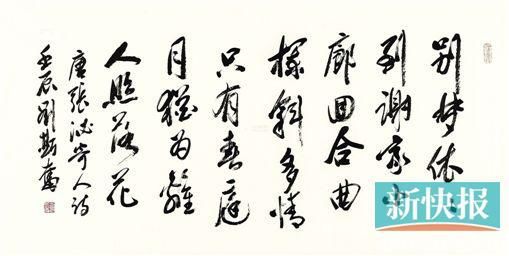 别夢依依
到謝家小
廊回合曲
欄斜多情
只有春庭
月猶为離
人照落花
唐張泌寄人詩
壬辰劉斯奮
新快报